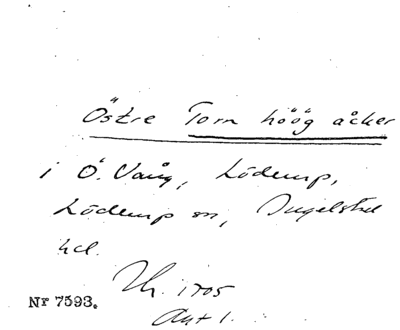 Östre Torn höög åcker
i Ö. Vång, Löderup,
Löderup sn, Ingelstad
hd.
Th. 1705
Akt 1.
Nr 7593.